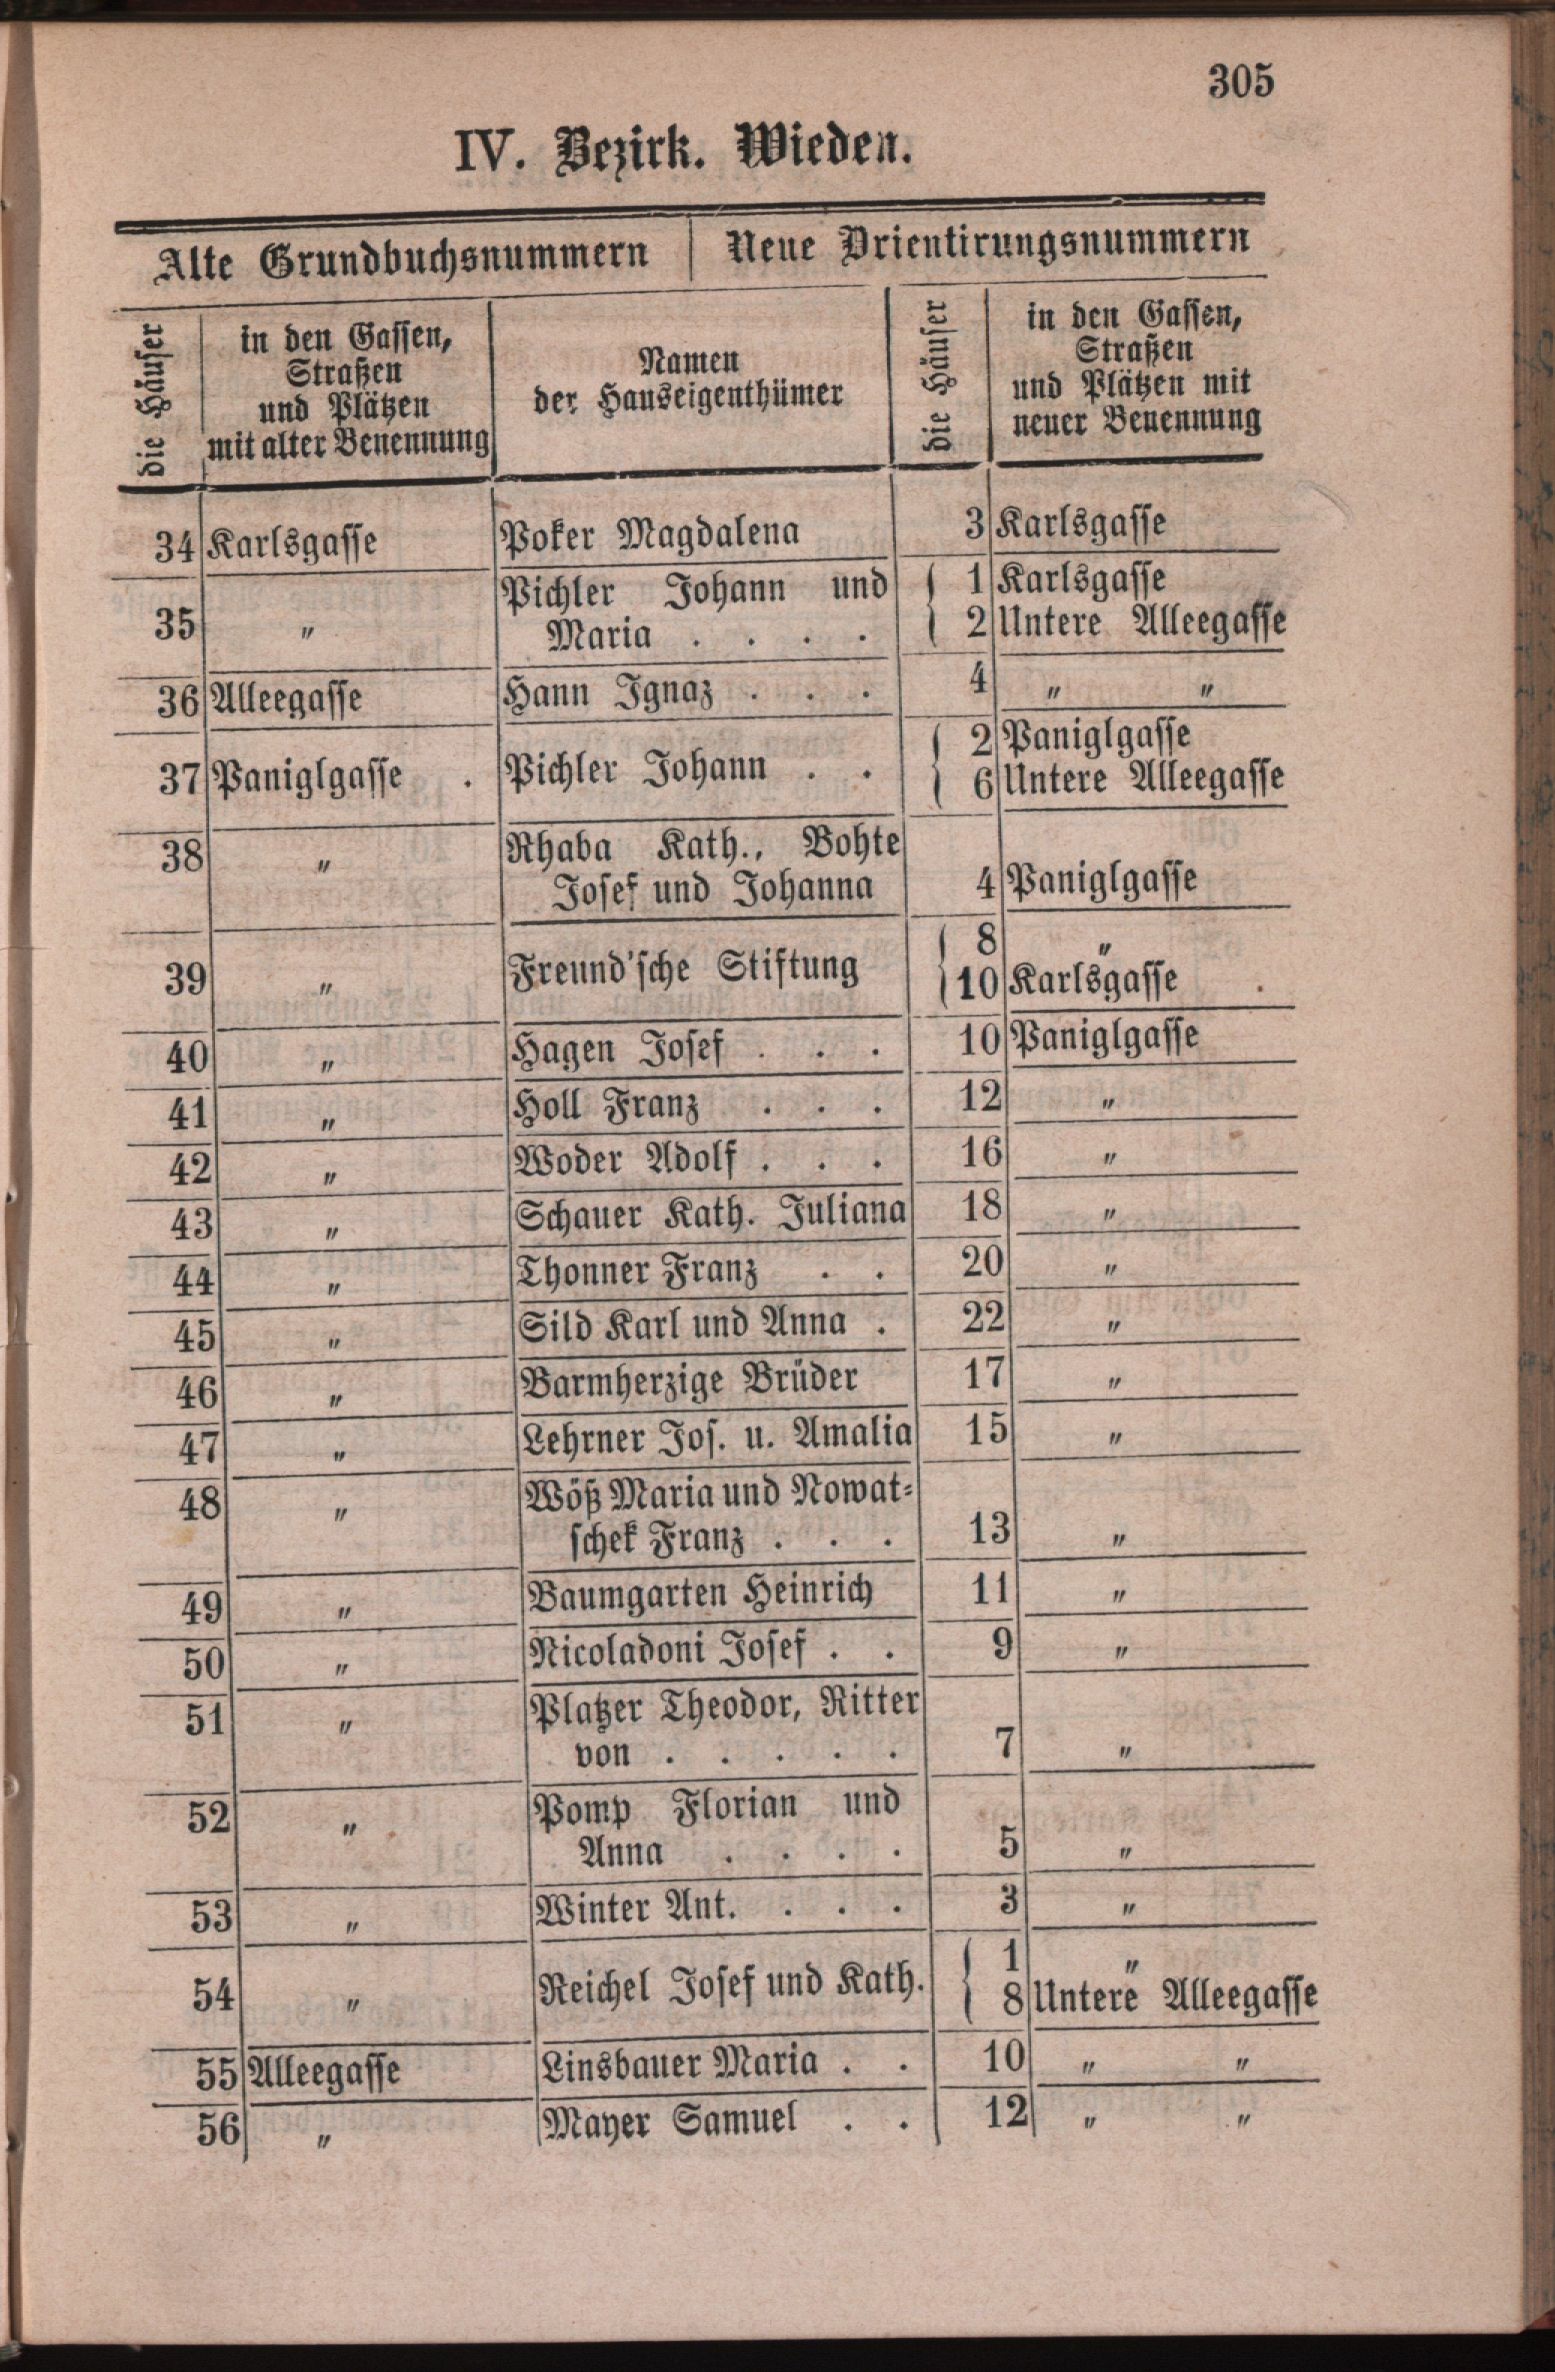 305
IV. Bezirk. Wieden.
Alte Grundbuchsnummern | Neue Orientirungsnummern
die Häuser
in den Gassen,
Straßen
und Plätzen
mit alter Benennung
Namen
der Hauseigenthümer
die Häuser
in den Gassen,
Straßen
und Plätzen mit
neuer Benennung
34 Karlsgasse Poker Magdalena 3 Karlsgasse
35 „ Pichler Johann und { 1 Karlsgasse
Maria . . . . { 2 Untere Alleegasse
36 Alleegasse Hann Ignaz . . . 4 „ „
37 Paniglgasse . Pichler Johann . . { 2 Paniglgasse
{ 6 Untere Alleegasse
38 „ Rhaba Kath., Bohte
Josef und Johanna 4 Paniglgasse
39 „ Freund'sche Stiftung { 8 „
{ 10 Karlsgasse .
40 „ Hagen Josef . . . 10 Paniglgasse
41 „ Holl Franz . . . 12 „
42 „ Woder Adolf . . . 16 „
43 „ Schauer Kath. Juliana 18 „
44 „ Thonner Franz . . 20 „
45 „ Sild Karl und Anna . 22 „
46 „ Barmherzige Brüder 17 „
47 „ Lehrner Jos. u. Amalia 15 „
48 „ Wöß Maria und Nowat-
schek Franz . . . 13 „
49 „ Baumgarten Heinrich 11 „
50 „ Nicoladoni Josef . . 9 „
51 „ Platzer Theodor, Ritter
von . . . . . 7 „
52 „ Pomp Florian und
Anna . . . . 5 „
53 „ Winter Ant. . . . 3 „
54 „ Reichel Josef und Kath. { 1 „
{ 8 Untere Alleegasse
55 Alleegasse Linsbauer Maria . . 10 „ „
56 „ Mayer Samuel . . 12 „ „